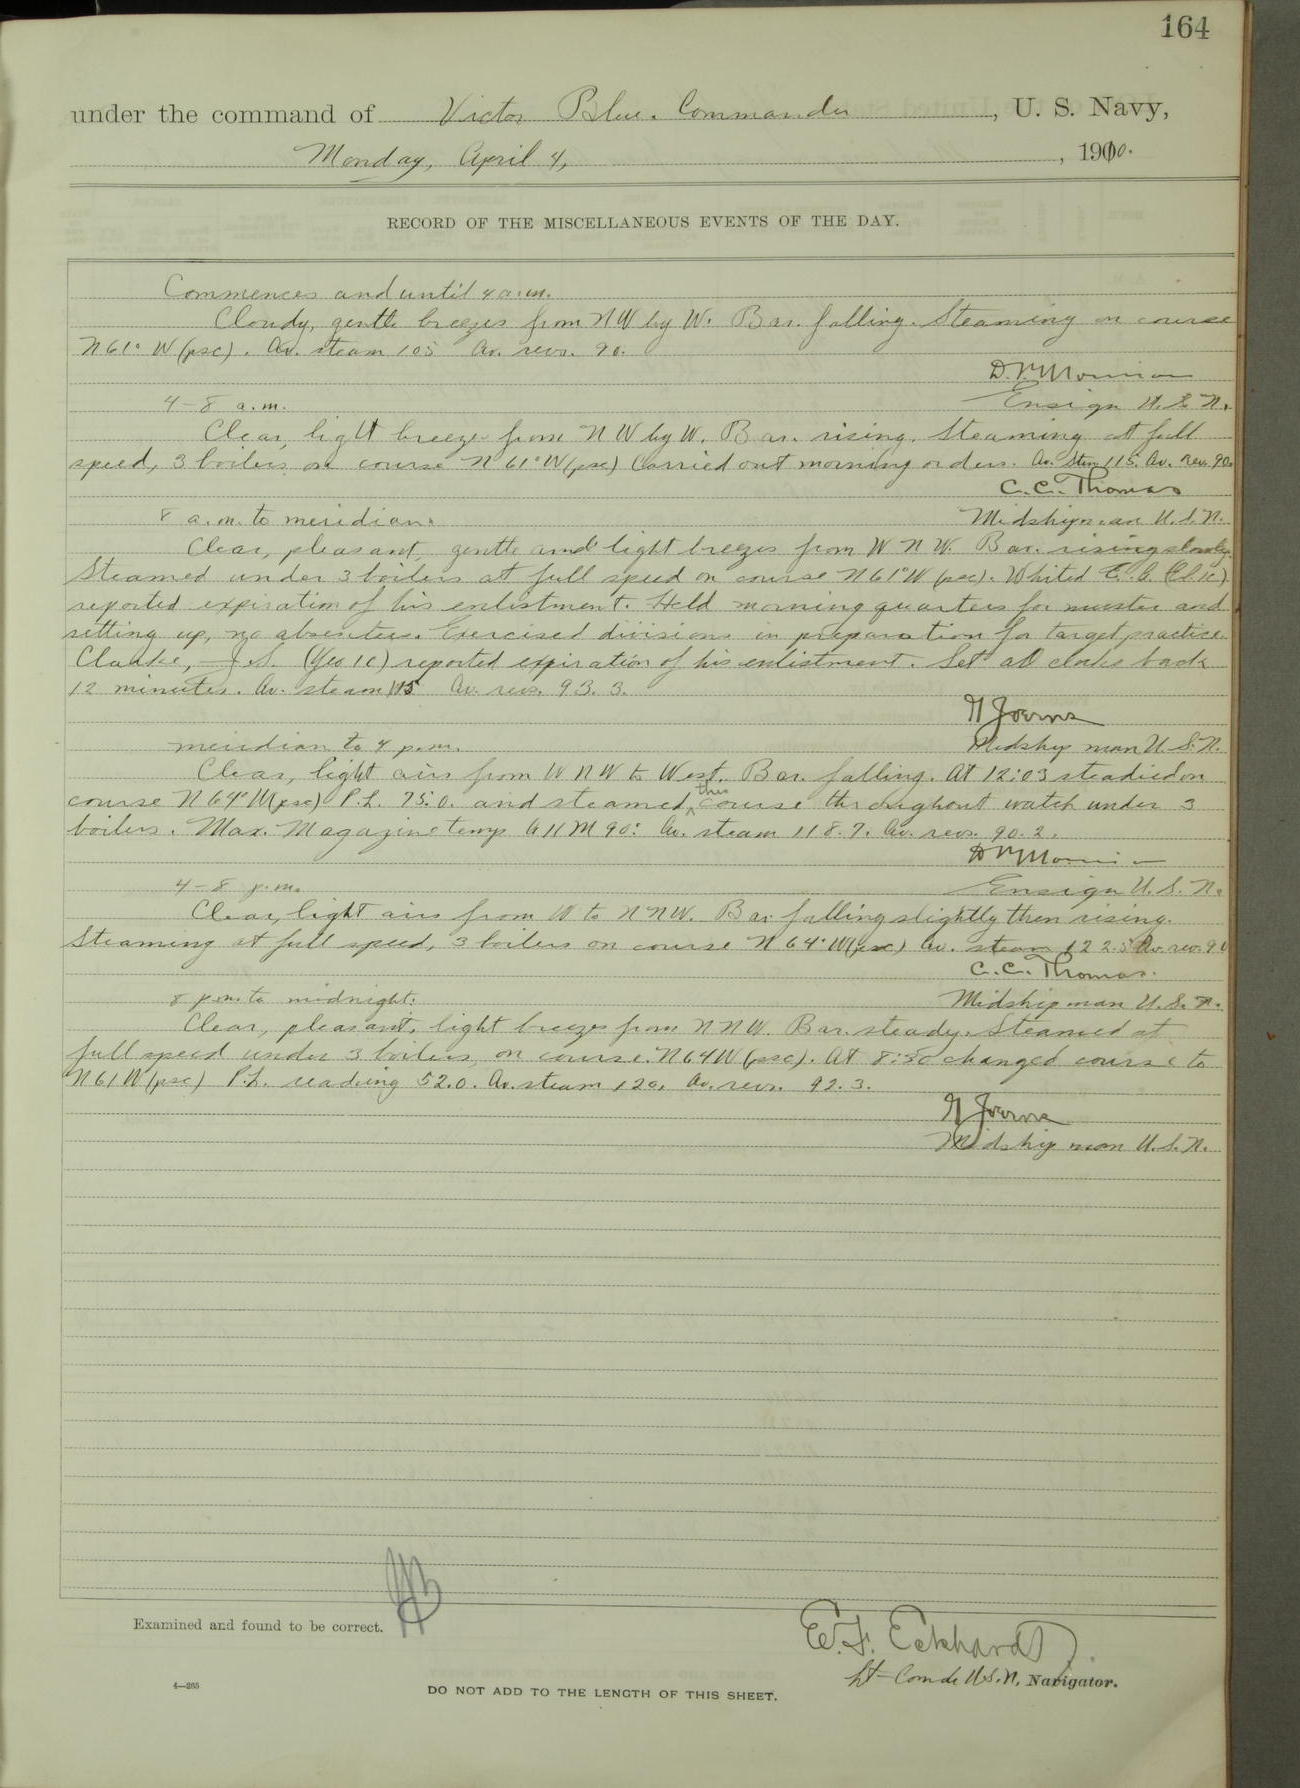 164
under the command of Victor Blue. Commander, U. S. Navy,
Monday, April 4, 1910.
RECORD OF THE MISCELLANEOUS EVENTS OF THE DAY.
Commences and until 4 a.m.
Cloudy, gentle breezes from NW by W. Bar. falling. Steaming on course
N61° W (psc). Av. steam 105 Av. revs. 90.
Ensign U.S.N.
4-8 a.m.
Clear, light breeze from NW by W. Bar. rising. Steaming at full
speed, 3 boilers on course N 61° W (psc) Carried out morning orders. Av. Stm 115. Av. Rev. 90.
C.C. Thomas
Midshipman U.S.N.
8 a.m. to meridian.
Clear, pleasant, gentle and light breezes from WNW. Bar. rising slowly.
Steamed under 3 boilers at full speed on course N61°W (psc). Whited
reported expiration of his enlistment. Held morning quarters for muster and
setting up, no absentees. Exercised divisions in preparation for target practice.
Clarke, J.S. (Yeo 1c) reported expiration of his enlistment. Set all clocks back
12 minutes. Av. steam 115 Av. revs. 93.3.
Midshipman U.S.N.
meridian to 4 p.m.
Clear, light airs from WNW to West. Bar. falling. At 12:03 steadied on
course N 64° W (psc) P.L. 75.0. and steamed this course throughout watch under 3
boilers. Max. Magazine temp 90°. Av. steam 118.7. Av. revs. 90.2.
Ensign U.S.N.
4-8 p.m.
Clear, light airs from W to NNW. Bar falling slightly then rising.
Steaming at full speed, 3 boilers on course N 64° W (psc) Av. steam 122.5 Av. rev. 90
C.C. Thomas.
Midshipman U.S.N.
8 p.m. to midnight.
Clear, pleasant, light breezes from NNW. Bar. steady. Steamed at
full speed under 3 boilers, on course N64W (psc). At 8:30 changed course to
N61W (psc) P.L. reading 52.0. Av. steam 120. Av. revs. 92.3.
Midshipman U.S.N.
Examined and found to be correct.
E.F. Eckhardt
Lt-Comdr U.S.N. Navigator.
4—265
DO NOT ADD TO THE LENGTH OF THIS SHEET.